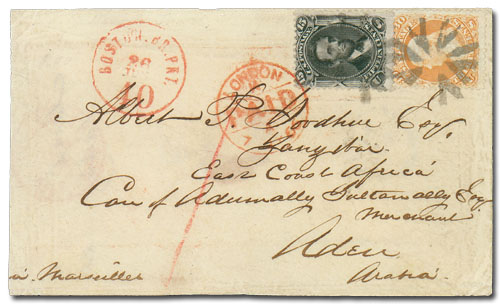 BOSTON. BR. PKT.
28
10
LONDON
PAID
15
Albert P. Goodhue Esq.
Zanzibar
East Coast Africa
Care of Adumally Sultanally Esq.
Merchant
Aden
Arabia
Marseilles